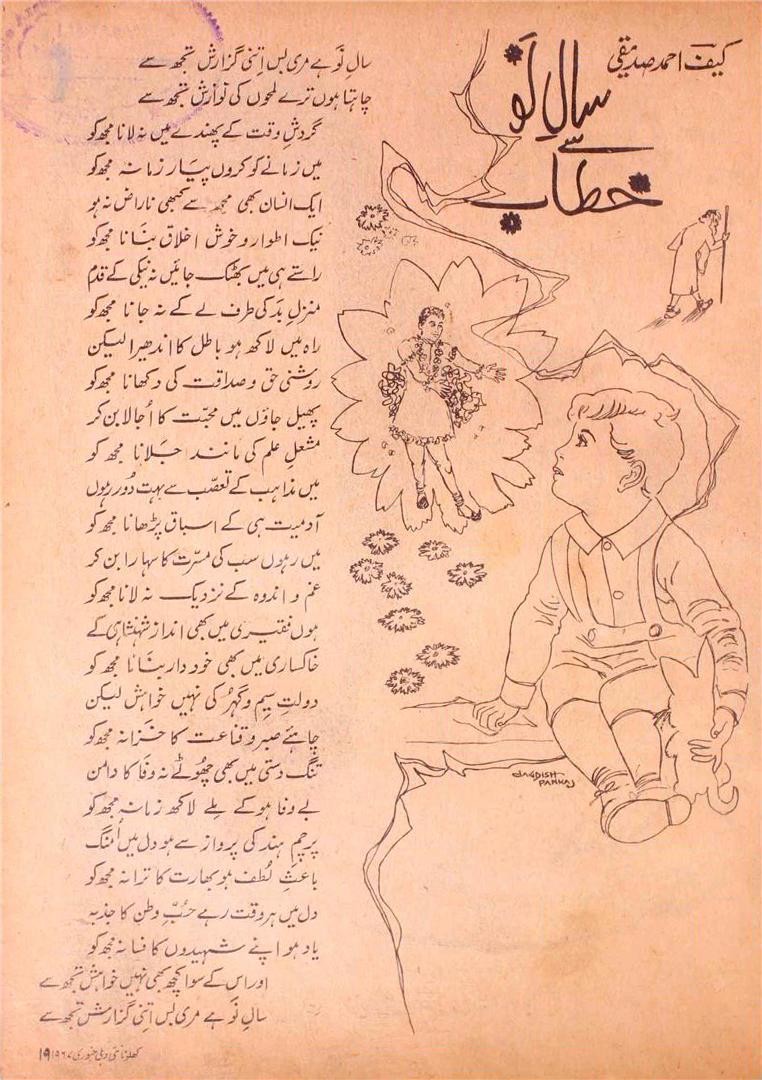 کیف احمد صدیقی
سالِ نَو
سے
خطاب
سالِ نَو ہے مری بس اِتنی گزارش تجھ سے
چاہتا ہوں ترے لمحوں کی نَوازش تجھ سے
گردشِ وقت کے پھندے میں نہ لانا مجھ کو
میں زمانے کو کروں پیار زمانہ مجھ کو
ایک انسان بھی مجھ سے کبھی ناراض نہ ہو
نیک اطوار و خوش اخلاق بنَانا مجھ کو
راستے ہی میں بھٹک جائیں نہ نیکی کے قدم
منزلِ بَد کی طرف لے کے نہ جانا مجھ کو
راہ میں لاکھ ہو باطل کا اندھیرا لیکن
روشنی حق و صداقت کی دکھانا مجھ کو
پھیل جاؤں میں محبّت کا اُجالا بن کر
مشعلِ علم کی مانند جَلانا مجھ کو
میں مذاہب کے تعصّب سے بہت دُور رہوں
آدمیت ہی کے اسباق پڑھانا مجھ کو
میں رہوں سب کی مسرّت کا سہارا بن کر
غم و اندوہ کے نزدیک نہ لانا مجھ کو
ہوں فقیری میں بھی انداز شہنشاہی کے
خاکساری میں بھی خود دار بنَانا مجھ کو
دولتِ سِیم و گہُر کی نہیں خواہش لیکن
چاہئے صبر و قناعت کا خَزانہ مجھ کو
تنگ دستی میں بھی چھُوٹے نہ وفَا کا دامن
بے وفا ہو کے مِلے لاکھ زمانہ مجھ کو
پرچمِ ہند کی پرواز سے ہو دل میں اُمنگ
باعثِ لُطف ہو بھارت کا ترانہ مجھ کو
دل میں ہر وقت رہے حُبِّ وطن کا جذبہ
یاد ہو اپنے شہیدوں کا فسانہ مجھ کو
اور اس کے سوا کچھ بھی نہیں خواہش تجھ سے
سالِ نَو ہے مری بس اِتنی گزارش تجھ سے
JAGDISH
PANKAJ
کھلونا نئی دہلی جنوری ۱۹۶۷
۱۹